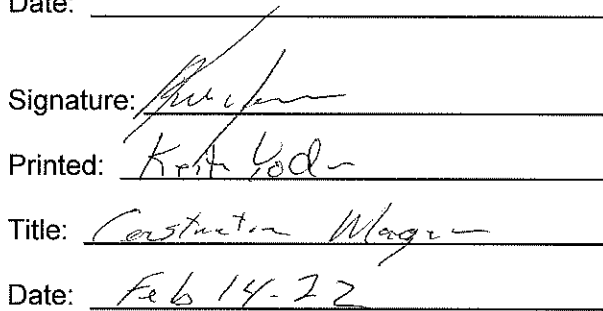 Date:
Signature:
Printed: Keith Yoder
Title: Construction Manager
Date: Feb 14-22